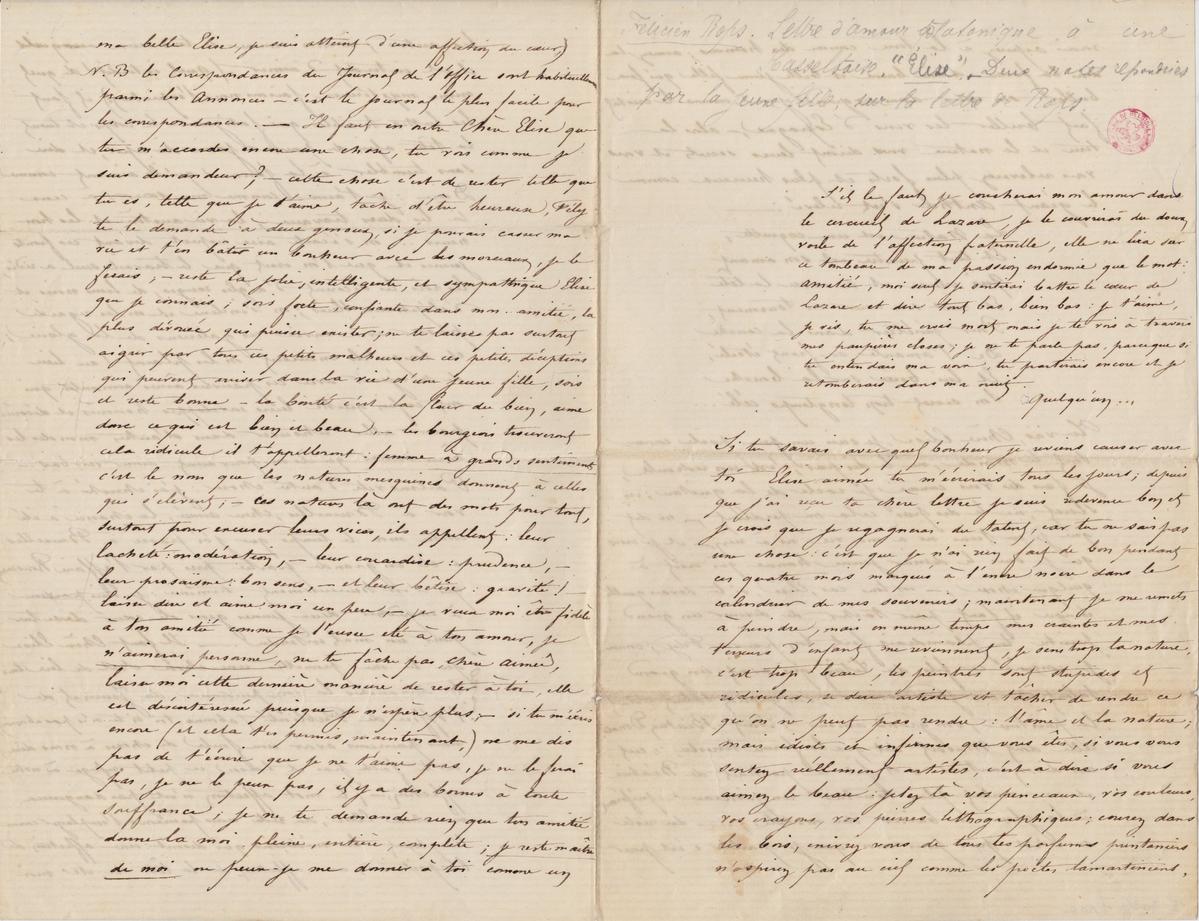 ma belle Elise, je suis atteint d'une affection du cœur)
N.B les Correspondances du Journal de l'office sont habituellem
parmi les Annonces – c'est le journal le plus facile pour
les correspondances. — Il faut en outre Chère Elise que
tu m'accordes encore une chose, tu vois comme je
suis demandeur? – cette chose c'est de rester telle que
tu es, telle que je t'aime, tâche d'être heureuse, Fély
te le demande à deux genoux, si je pouvais casser ma
vie et t'en bâtir un bonheur avec les morceaux, je le
ferais, – reste la jolie, intelligente, et sympathique Elise
que je connais; sois forte, confiante dans mon amitié, la
plus dévouée qui puisse exister; ne te laisses pas surtout
aigrir par tous ces petits malheurs et ces petites déceptions
qui peuvent arriver dans la vie d'une jeune fille, sois
et reste bonne – la bonté c'est la fleur du bien, aime
donc ce qui est bien et beau, – les bourgeois trouveront
cela ridicule il t'appelleront: femme à grands sentiments
c'est le nom que les natures mesquines donnent à celles
qui s'élèvent; – ces natures là ont des mots pour tout,
surtout pour excuser leurs vices, ils appellent: leur
lacheté: modération, – leur couardise: prudence, –
leur prosaïsme: bon sens, – et leur bêtise: gravité!
laisse dire et aime moi un peu, – je veux moi être fidèle
à ton amitié comme je l'eusse été à ton amour, je
n'aimerai personne, ne te fâche pas, chère aimée,
laisse moi cette dernière manière de rester à toi, elle
est désintéressée puisque je n'espère plus; – si tu m'écris
encore (et cela t'es permis, maintenant,) ne me dis
pas de t'écrire que je ne t'aime pas, je ne le ferai
pas, je ne le peux pas, il y a des bornes à toute
souffrance; je ne te demande rien que ton amitié
donne la moi pleine, entière, complète; je reste maître
de moi ou peux-je me donner à toi comme un
Félicien Rops. Lettre d'amour platonique à une
"Elise". Deux notes
par la jeune fille, sur la lettre de Rops
S'il le faut, je coucherai mon amour dans
le cercueil de Lazare, je le couvrirai du doux
voile de l'affection fraternelle, elle ne lira sur
ce tombeau de ma passion endormie que le mot:
amitié, moi seul je sentirai battre le cœur de
Lazare et dire tout bas, bien bas: je t'aime,
je vis, tu me crois mort mais je te vois à travers
mes paupières closes; je ne te parle pas, parce que si
tu entendais ma voix, tu partirais encore et je
retomberais dans ma nuit.
Quelqu'un...
Si tu savais avec quel bonheur je reviens causer avec
toi Elise aimée tu m'écrirais tous les jours; depuis
que j'ai reçu ta chère lettre je suis redevenu bon et
je crois que je regagnerai du talent, car tu ne sais pas
une chose: c'est que je n'ai rien fait de bon pendant
ces quatre mois marqués à l'encre noire dans le
calendrier de mes souvenirs; maintenant je me remets
à peindre, mais en même temps mes craintes et mes
terreurs d'enfant me reviennent, je sens trop la nature,
c'est trop beau, les peintres sont stupides et
ridicules, se dire artiste et tâcher de rendre ce
qu'on ne peut pas rendre: l'ame et la nature;
mais idiots et infirmes que vous êtes, si vous vous
sentez réellement artistes, c'est à dire si vous
aimez le beau: jetez là vos pinceaux, vos couleurs,
vos crayons, vos pierres lithographiques; courez dans
les bois, enivrez vous de tous les parfums printaniers
n'aspirez pas au ciel comme les poètes lamartiniens,